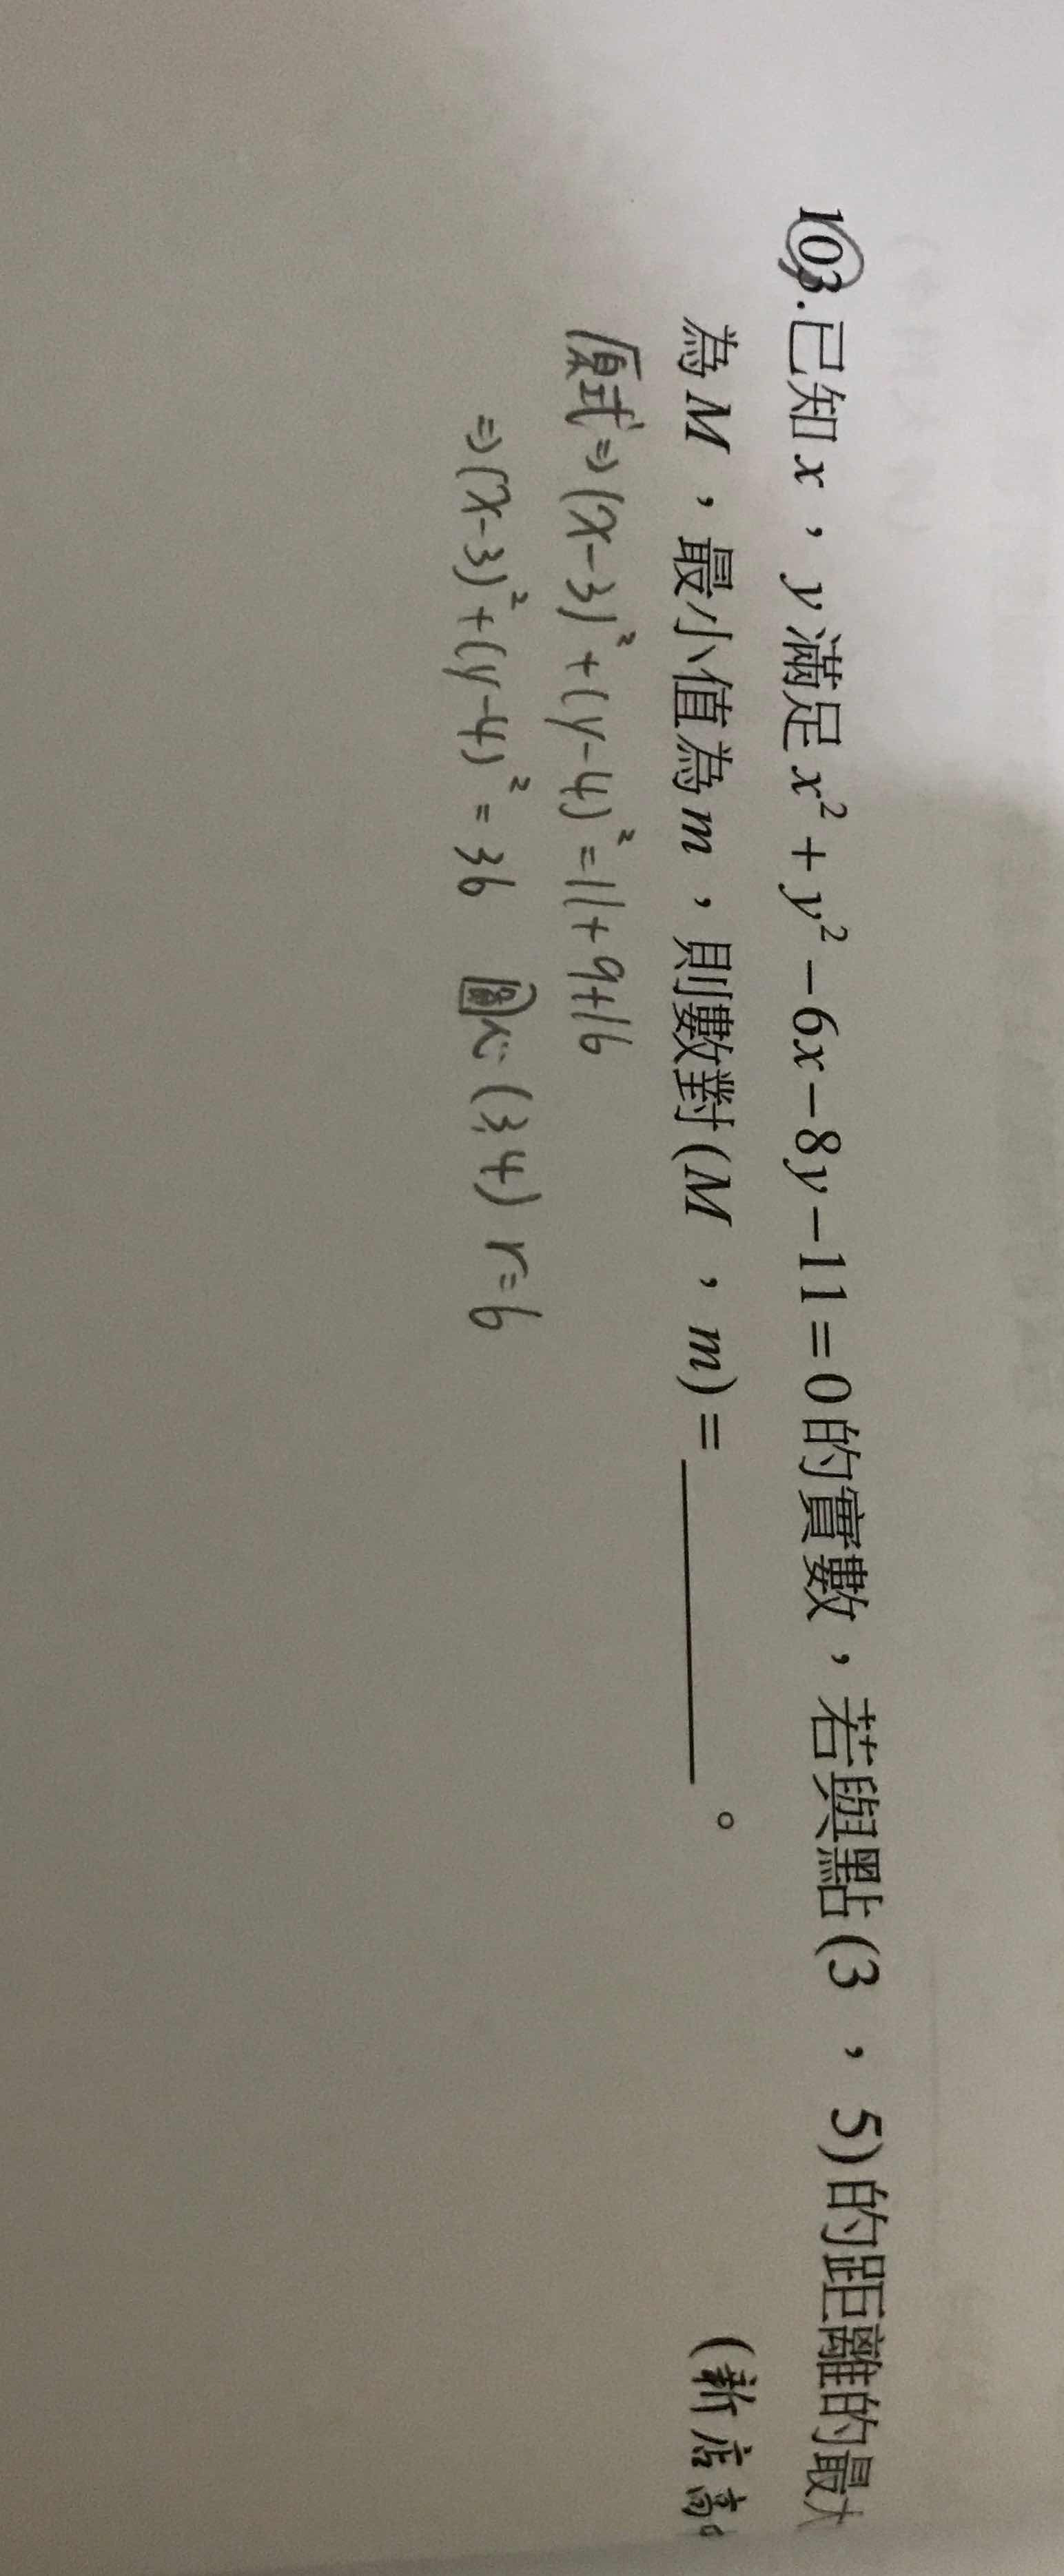 103.已知x，y滿足x²+y²−6x−8y−11=0的實數，若與點(3，5)的距離的最大
為M，最小值為m，則數對(M，m)=＿＿＿＿。 (新店高中
原式⇒(x-3)²+(y-4)²=11+9+16
⇒(x-3)²+(y-4)²=36 圓心(3,4) r=6